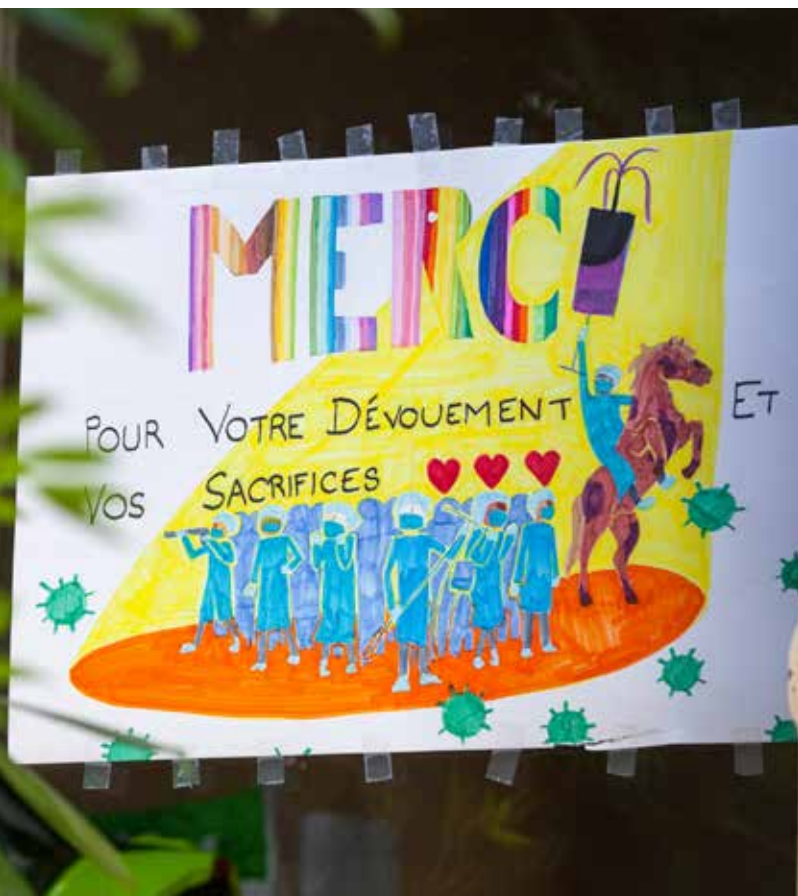 MERCI
POUR VOTRE DÉVOUEMENT ET
VOS SACRIFICES